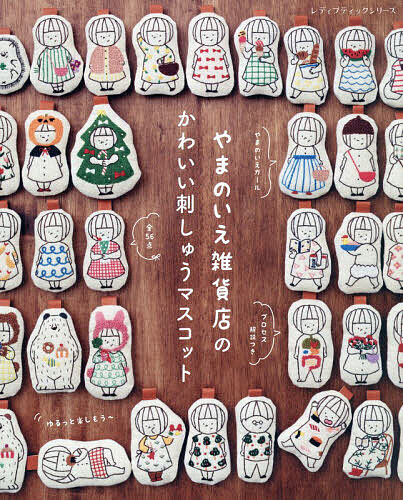 レディブティックシリーズ
やまのいえ雑貨店の
かわいい刺しゅうマスコット
やまのいえガール
全56点
プロセス
解説つき
ゆるっと楽しもう〜